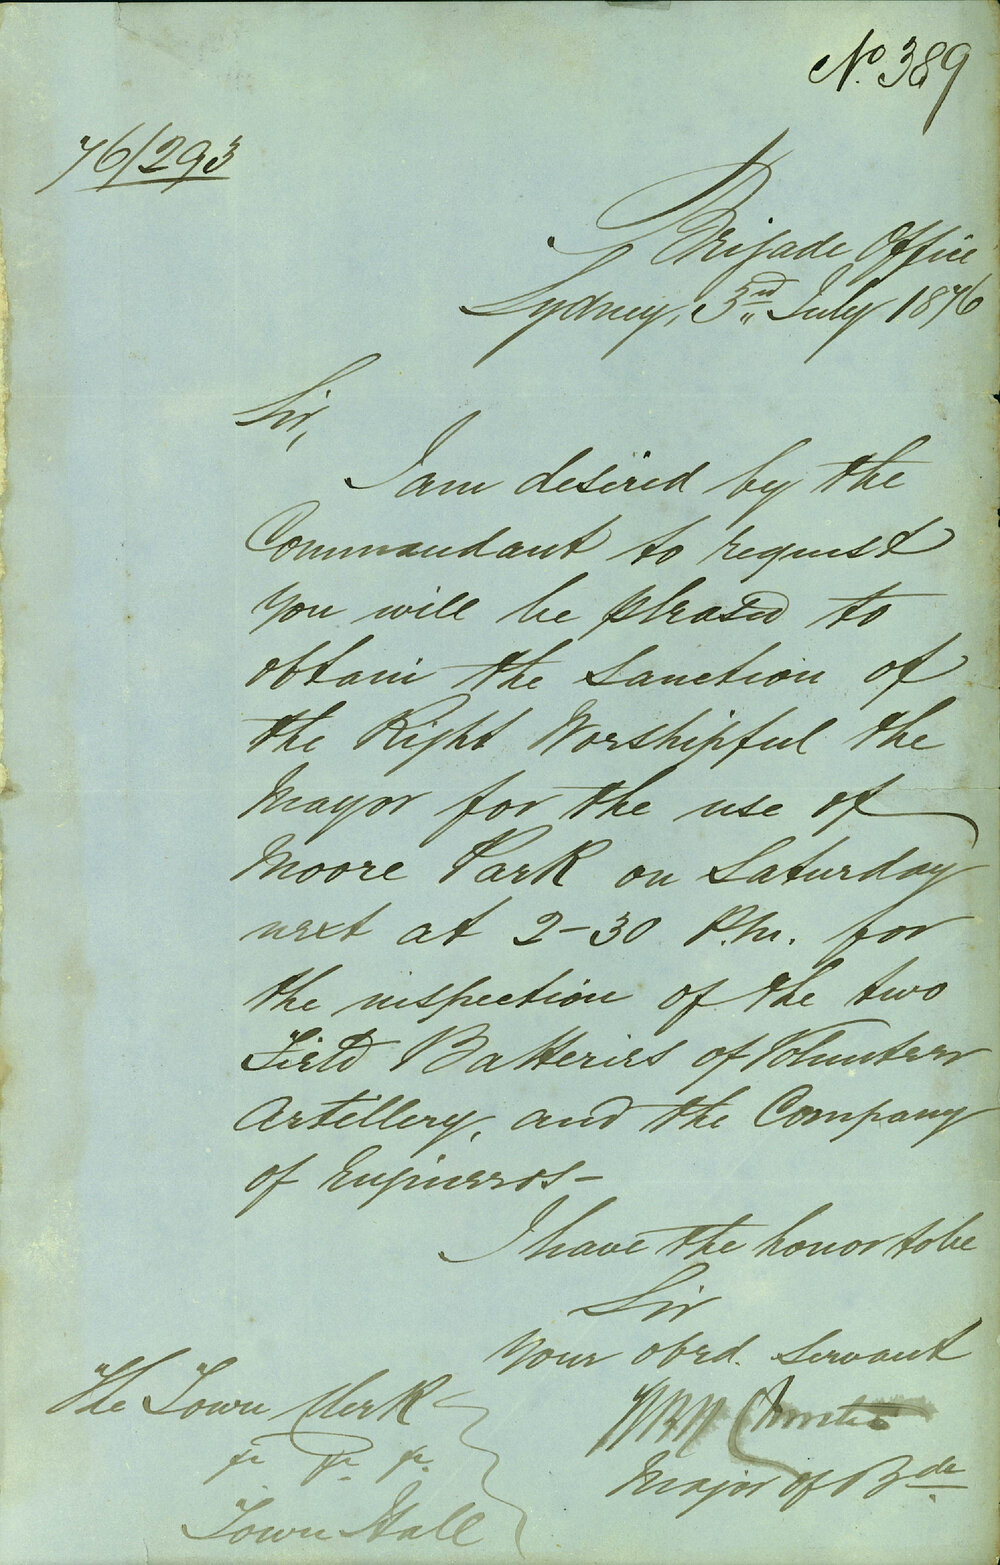 No. 389
76/293
Brigade Office
Sydney, 3rd July 1876
Sir,
I am desired by the
Commandant to request
you will be pleased to
obtain the sanction of
the Right Worshipful the
Mayor for the use of
Moore Park on Saturday
next at 2-30 P.M. for
the inspection of the two
Field Batteries of Volunteer
Artillery, and the Company
of Engineers-
I have the honor to be
Sir
Your obed. servant
Christie
Major of Bde
The Town Clerk
Town Hall